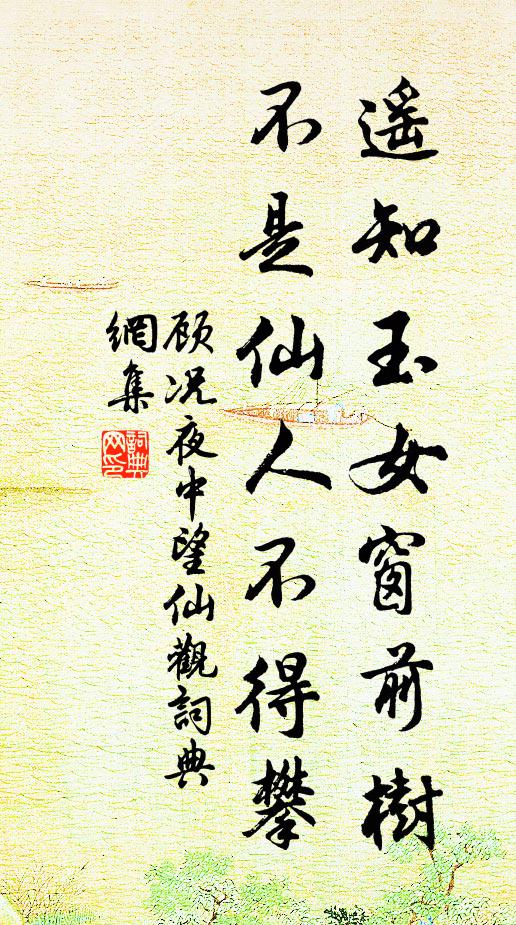 遥知玉女窗前樹
不是仙人不得攀
顾况夜中望仙觀詞典
網集
詞典
网印